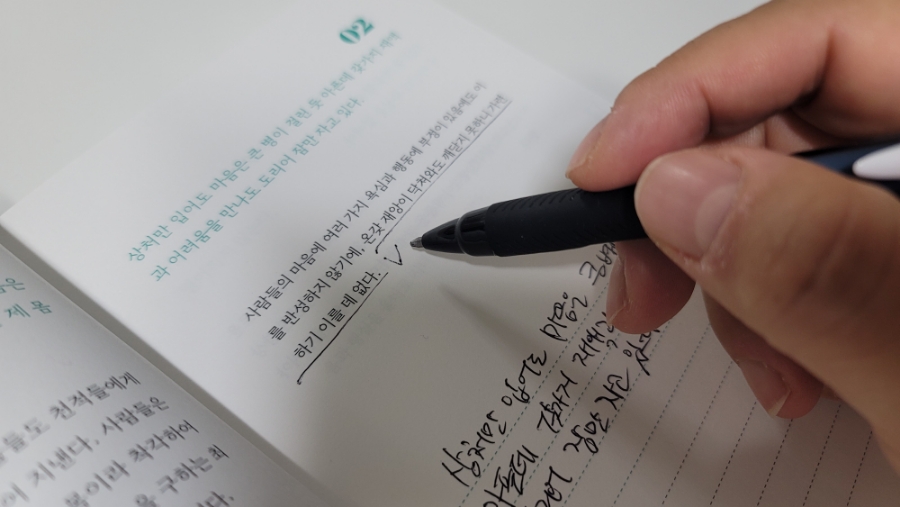 02
상처만 입어도 마음은 큰 병이 걸린 듯 아픈데 갖가지 재앙
과 어려움을 만나도 도리어 잠만 자고 있다.
사람들의 마음에 여러 가지 욕심과 행동에 부정이 있음에도 이
를 반성하지 않기에, 온갖 재앙이 닥쳐와도 깨닫지 못하니 가련
하기 이를 데 없다.
상처만 입어도 마음은 큰병
아픈데 갖가지 재앙
잠만 자고 있다
은
제 몸
들도 친척들에게
이 지낸다. 사람들은
복이라 착각하여
을 구하는 죄
다.